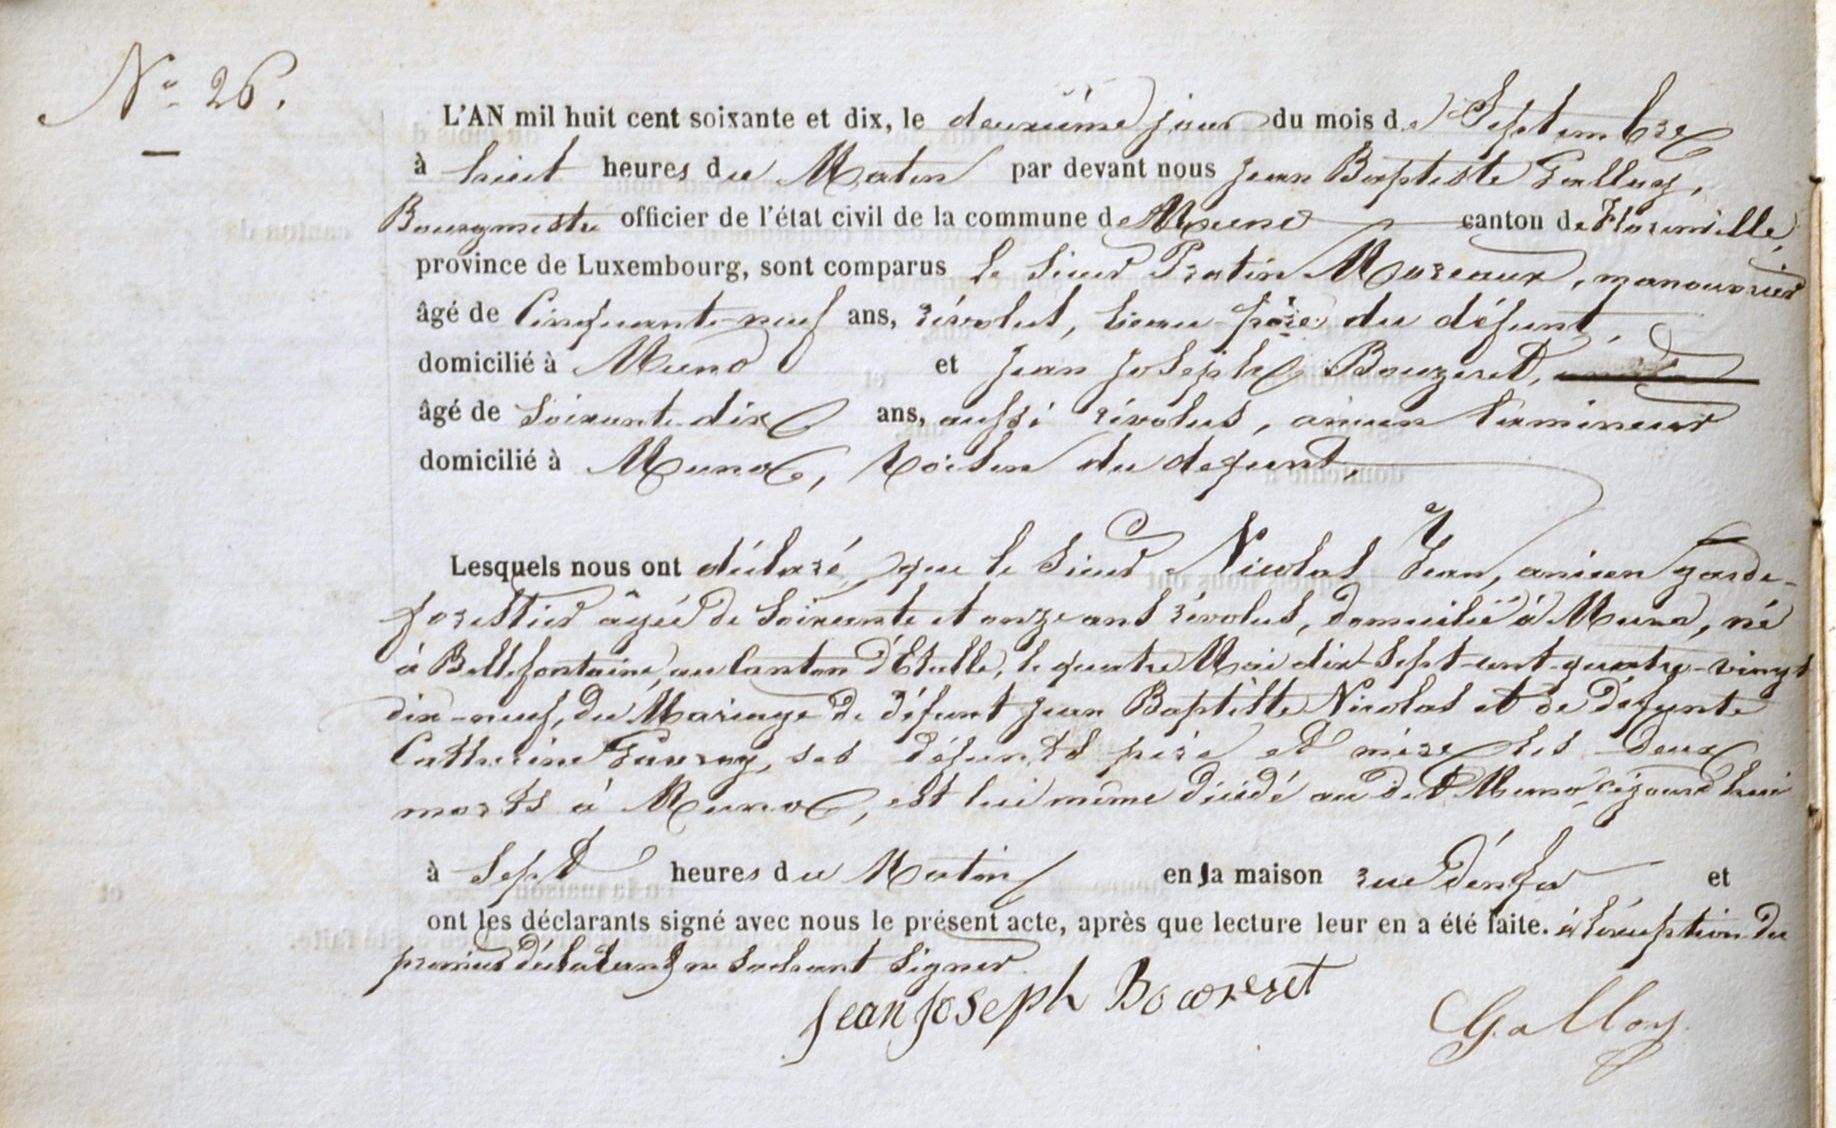 N° 26.
L'AN mil huit cent soixante et dix, le deuxième jour du mois de Septembre
à huit heures du Matin par devant nous Jean Baptiste Galloy,
Bourgmestre officier de l'état civil de la commune de Muno canton de Florenville,
province de Luxembourg, sont comparus le Sieur Moreaux, manouvrier
âgé de Cinquante-neuf ans, révolus, beau-père du défunt,
domicilié à Muno et Jean Joseph Bouzeret,
âgé de Soixante-dix ans, aussi révolus, ancien
domicilié à Muno, Voisin du defunt.
Lesquels nous ont déclaré, que le Sieur Nicolas Jean, ancien garde-
forestier âgée de Soixante et onze ans révolus, domicilié à Muno, né
à Bellefontaine, au Canton d'Etalle, le quatre Mai dix-Sept-cent-quatre-vingt
dix-neuf, du Mariage de défunt Jean Baptiste Nicolas et de défunte
Catherine ses défunts père et mère les deux
morts à Muno, est lui même décédé au dit Muno cejourd'hui
à Sept heures du Matin en sa maison rue et
ont les déclarants signé avec nous le présent acte, après que lecture leur en a été faite. à l'éxception du
premier déclarant ne Sachant Signer.
Jean Joseph Bouzeret Galloy